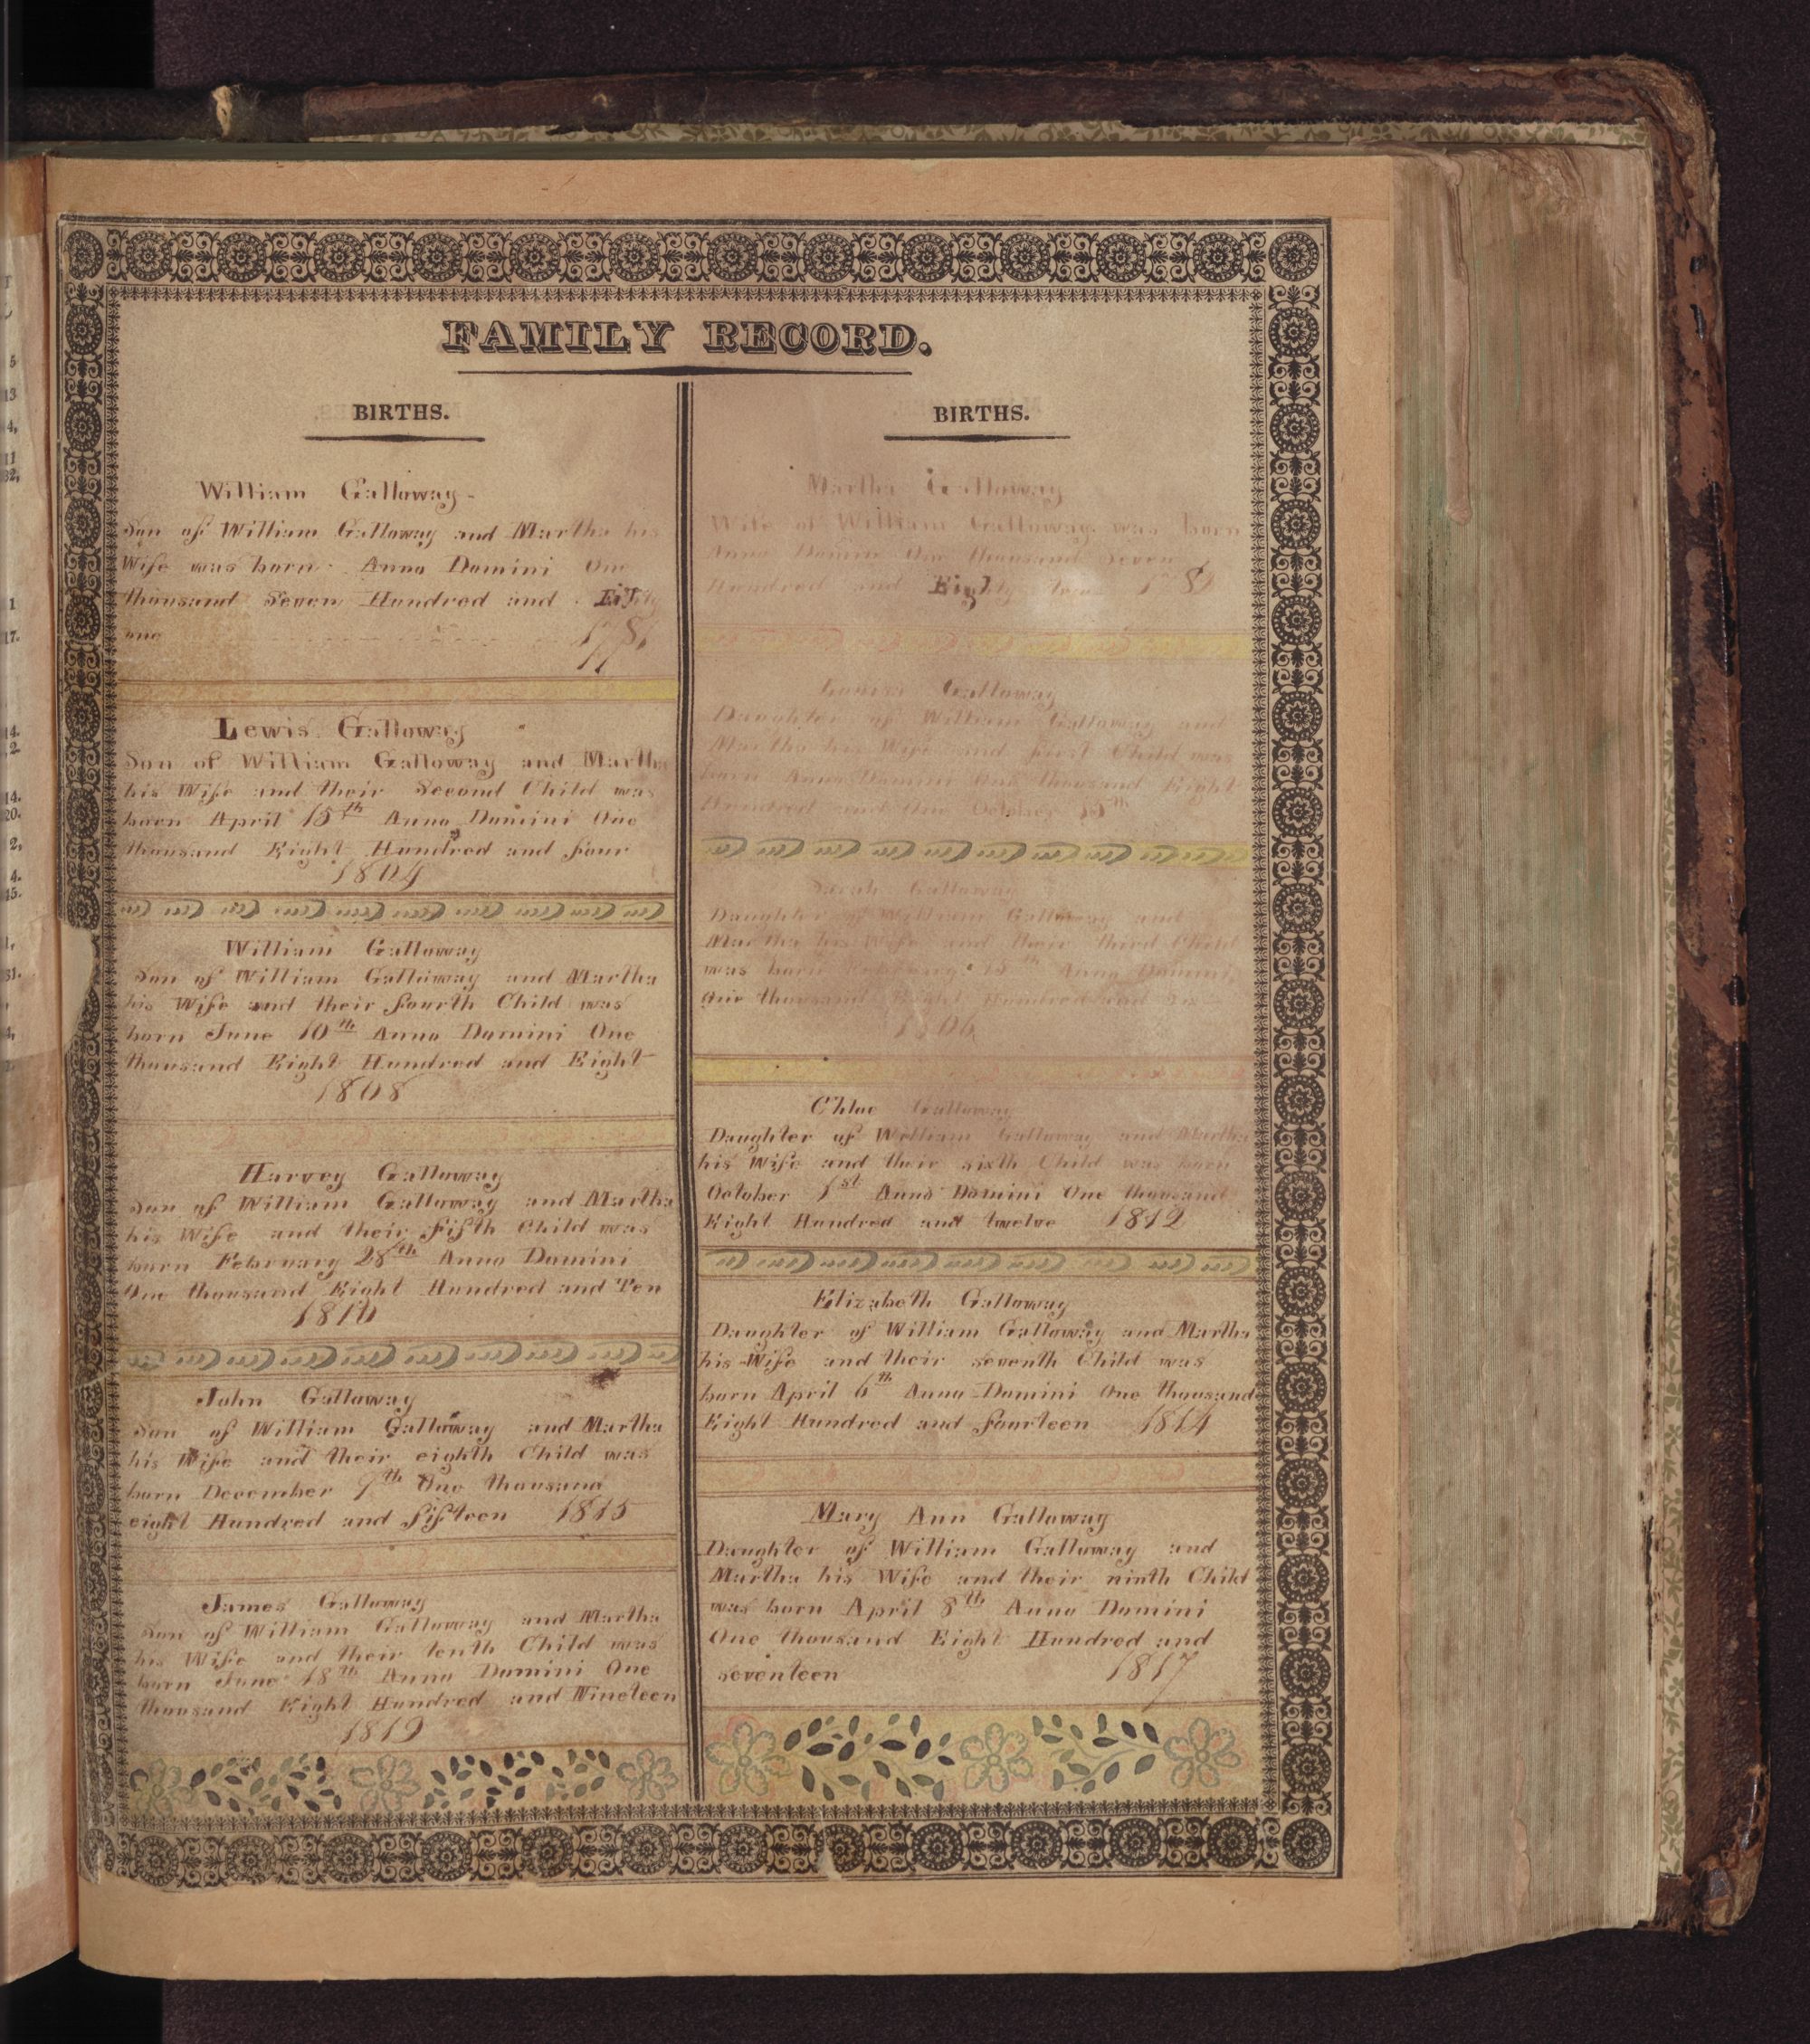 FAMILY RECORD.
BIRTHS.
William Galloway -
Son of William Galloway and Martha his
Wife was born Anno Domini One
thousand Seven Hundred and Eighty
one
Lewis Galloway
Son of William Galloway and Martha
his Wife and their Second Child was
born April 15th Anno Domini One
thousand Eight Hundred and four
1804
William Galloway
Son of William Galloway and Martha
his Wife and their fourth Child was
born June 10th Anno Domini One
thousand Eight Hundred and Eight
1808
Harvey Galloway
Son of William Galloway and Martha
his Wife and their Fifth Child was
born February 28th Anno Domini
One thousand Eight Hundred and Ten
1810
John Galloway
Son of William Galloway and Martha
his Wife and their eighth Child was
born December 7th One thousand
eight Hundred and fifteen 1815
James Galloway
Son of William Galloway and Martha
his Wife and their tenth Child was
born June 18th Anno Domini One
thousand Eight Hundred and Nineteen
1819
BIRTHS.
Martha Galloway
Wife of William Galloway was born
Anno Domini One thousand Seven
Hundred and Eighty
Galloway
Daughter of William Galloway and
Martha his Wife and first Child was
born Anno Domini One thousand Eight
Hundred and One October
Sarah Galloway
Daughter of William Galloway and
Martha his Wife and their third Child
was born Anno Domini
One thousand Eight Hundred and Six
1806
Chloe Galloway
Daughter of William Galloway and Martha
his Wife and their sixth Child was born
October 1st Anno Domini One thousand
Eight Hundred and twelve 1812
Elizabeth Galloway
Daughter of William Galloway and Martha
his Wife and their seventh Child was
born April 6th Anno Domini One thousand
Eight Hundred and fourteen 1814
Mary Ann Galloway
Daughter of William Galloway and
Martha his Wife and their ninth Child
was born April 8th Anno Domini
One thousand Eight Hundred and
seventeen 1817